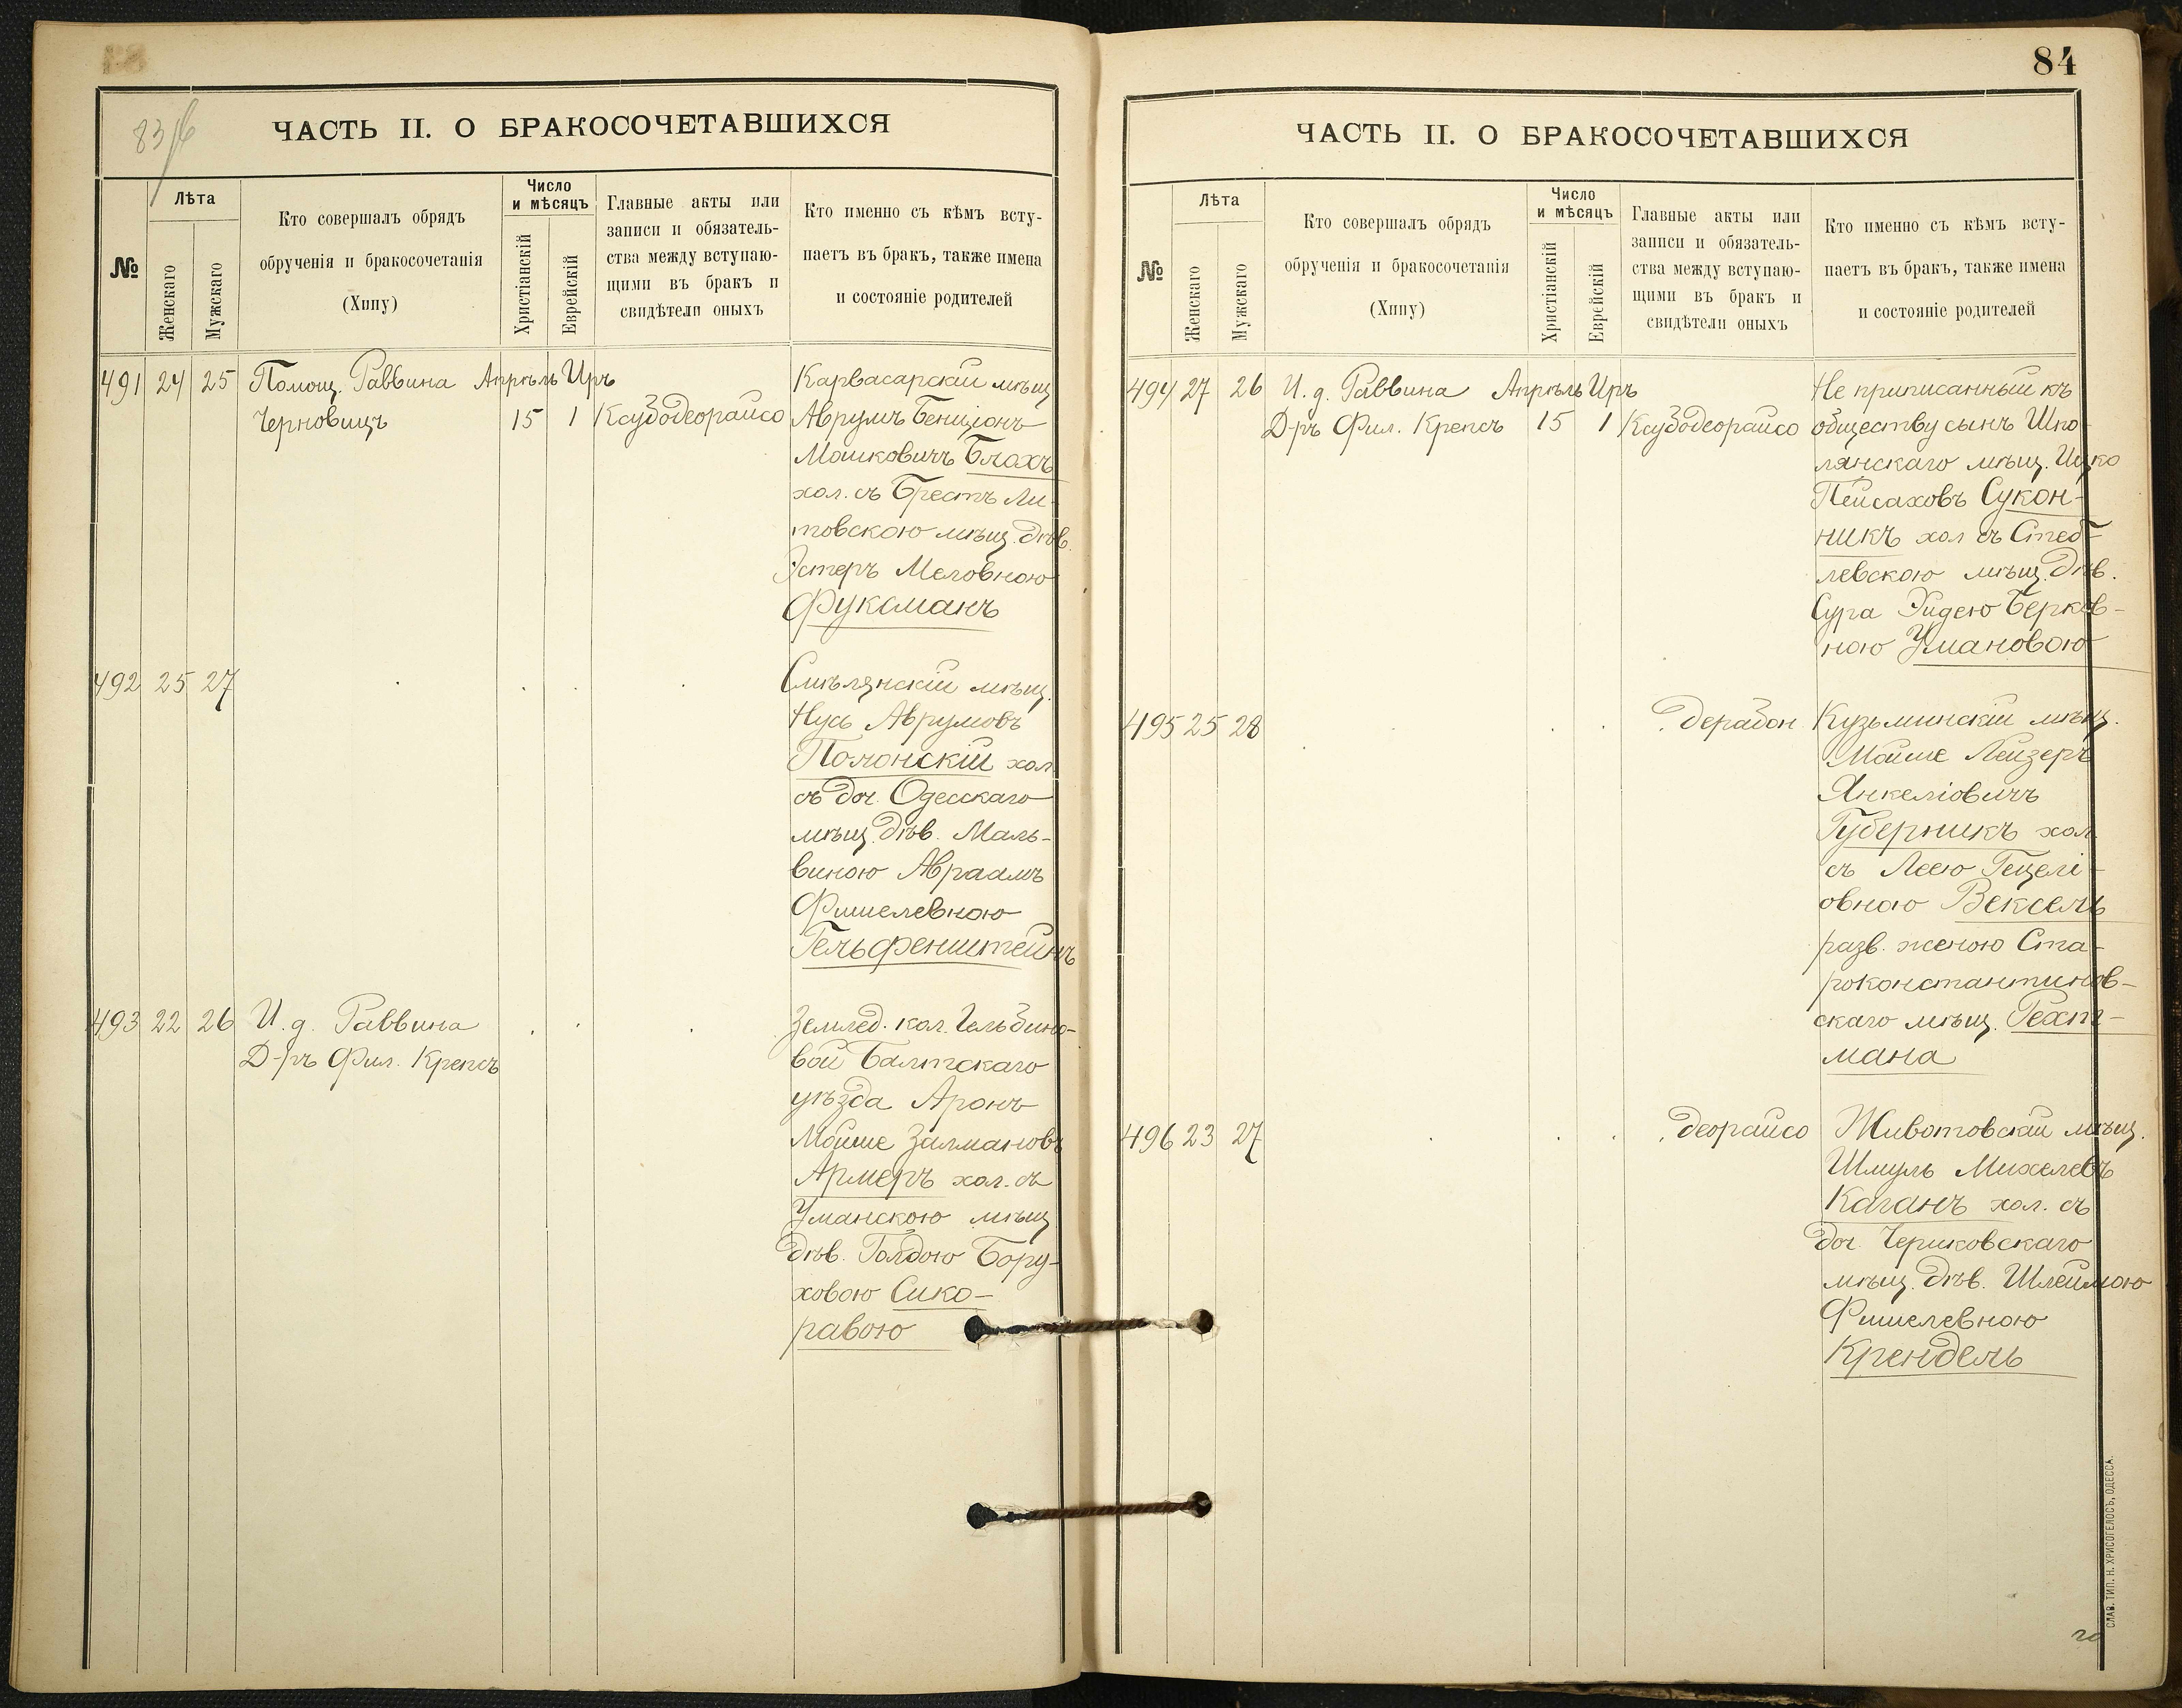 83 об
ЧАСТЬ II. О БРАКОСОЧЕТАВШИХСЯ
№
Лѣта
Женскаго
Мужскаго
Кто совершалъ обрядъ
обрученія и бракосочетанія
(Хипу)
Число
и мѣсяцъ
Христіанскій
Еврейскій
Главные акты или
записи и обязатель-
ства между вступаю-
щими въ бракъ и
свидѣтели оныхъ
Кто именно съ кѣмъ всту-
паетъ въ бракъ, также имена
и состояніе родителей
491 24 25 Помощ. Раввина Апрѣль Иръ Карвасарскій мѣщ
Черновицъ 15 1 Ксубодеорайсо Аврумъ Бенціонъ
Мошковичъ Блохъ
хол. съ Брестъ Ли-
товскою мѣщ. дѣв.
Эстеръ Меловною
Фуксманъ
492 25 27 Смѣлянскій мѣщ.
Нусь Аврумовъ
Полонскій хол.
съ доч. Одесскаго
мѣщ. дѣв. Маль-
виною Авраамъ
Фишелевною
Гельфенштейнъ
493 22 26 И. д. Раввина Землед. кол. Гальбино-
Д-ръ Фил. Крепсъ вой Балтскаго
уѣзда Аронъ
Мойше Залмановъ
Армеръ хол. съ
Уманскою мѣщ
дѣв. Голдою Бору-
ховою Сико-
равою
84
ЧАСТЬ II. О БРАКОСОЧЕТАВШИХСЯ
№
Лѣта
Женскаго
Мужскаго
Кто совершалъ обрядъ
обрученія и бракосочетанія
(Хипу)
Число
и мѣсяцъ
Христіанскій
Еврейскій
Главные акты или
записи и обязатель-
ства между вступаю-
щими въ бракъ и
свидѣтели оныхъ
Кто именно съ кѣмъ всту-
паетъ въ бракъ, также имена
и состояніе родителей
494 27 26 И. д. Раввина Апрѣль Иръ Не приписанный къ
Д-ръ Фил. Крепсъ 15 1 Ксубодеорайсо обществу сынъ Шпо-
лянскаго мѣщ. Ицко
Пейсаховъ Сукон-
никъ хол съ Стеб-
левскою мѣщ. дѣв.
Сура Хидею Берков-
ною Умановою
495 25 28 дерабон. Кузьминскій мѣщ.
Мойше Лейзеръ
Янкеліовичъ
Губерникъ хол.
съ Леею Гецелі-
овною Вексель
разв. женою Ста-
роконстантинов-
скаго мѣщ. Рехт-
мана
496 23 27 деорайсо Животовскій мѣщ.
Шмуль Михелевъ
Каганъ хол. съ
доч. Чериковскаго
мѣщ. дѣв. Шлеймою
Фишелевною
Крендель
СЛАВ. ТИП. Н. ХРИСОГЕЛОСЪ, ОДЕССА.